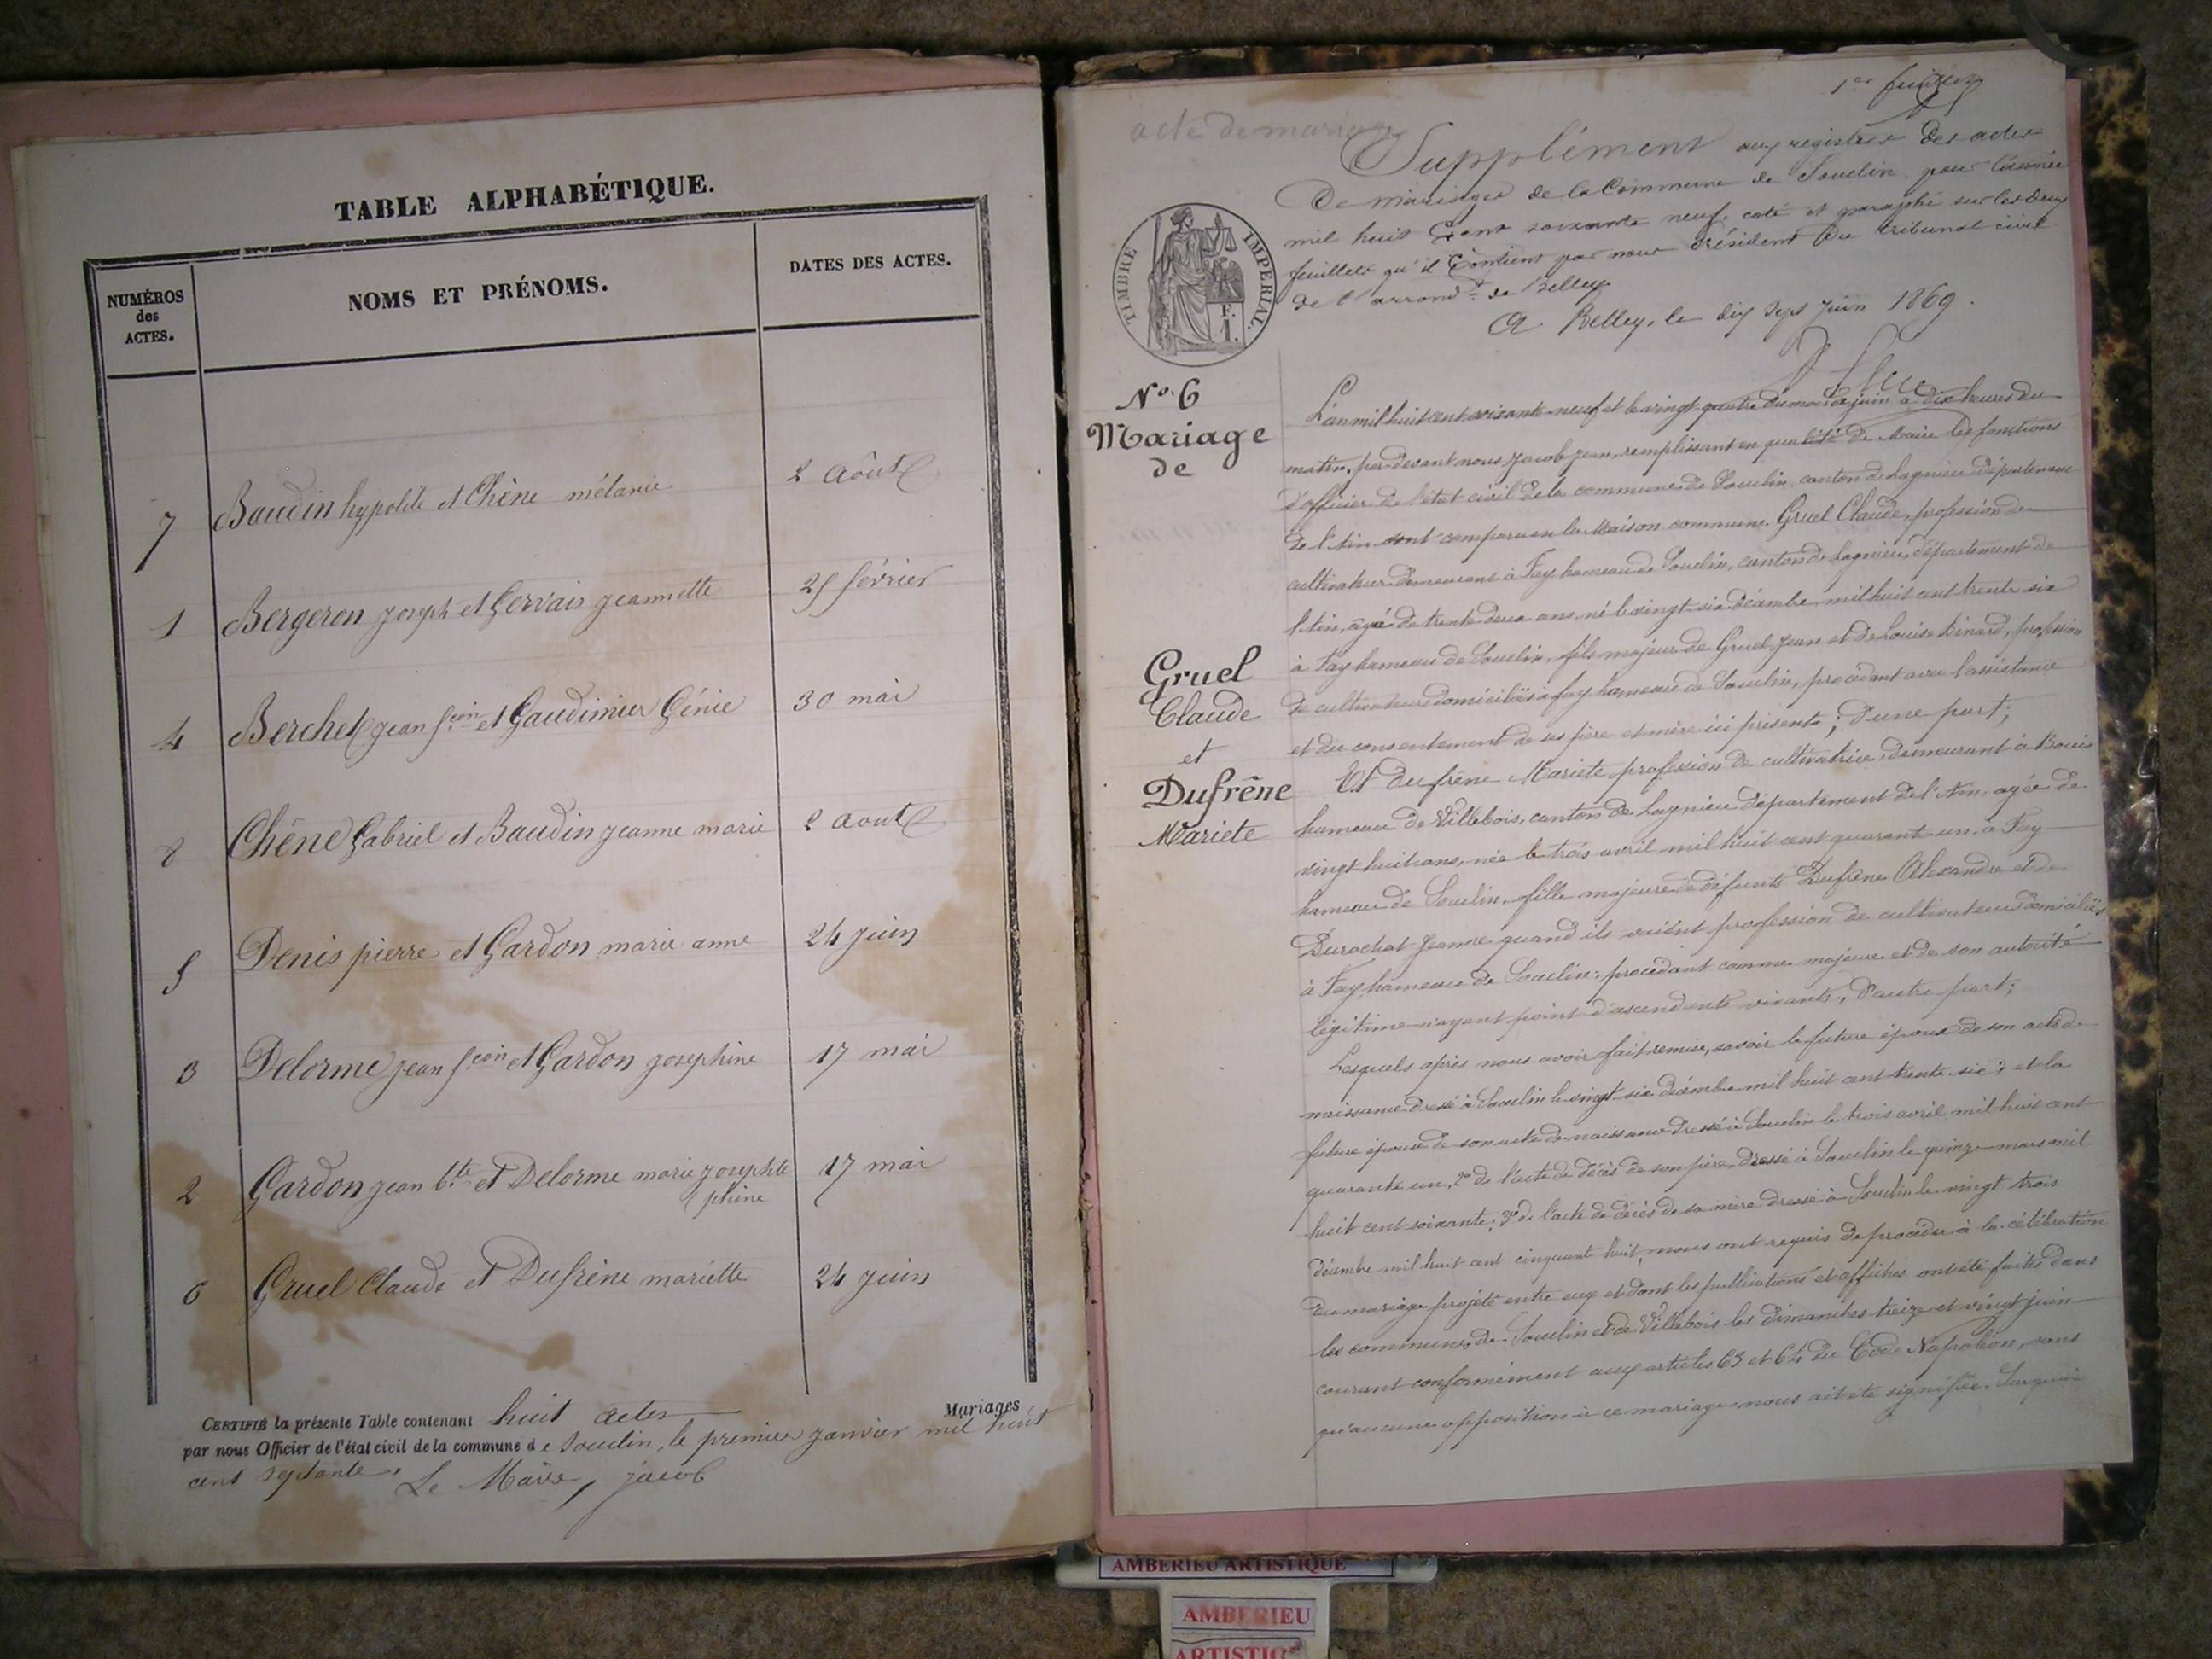 TABLE ALPHABÉTIQUE.
NUMÉROS des ACTES.
NOMS ET PRÉNOMS.
DATES DES ACTES.
7 Baudin hypolite et Chêne mélanie 2 Août
1 Bergeron joseph et Gervais jeannette 25 février
4 Berchet jean fçois et Gaudinier Génie 30 mai
8 Chêne Gabriel et Baudin jeanne marie 2 aout
5 Denis pierre et Gardon marie anne 24 juin
3 Delorme jean fçois et Gardon josephine 17 mai
2 Gardon jean bte et Delorme marie josephte 17 mai
phine
6 Gruel Claude et Dufrêne mariette 24 juin
CERTIFIÉ la présente Table contenant huit actes Mariages
par nous Officier de l'état civil de la commune de Souclin, le premier janvier mil huit
cent septante. Le Maire, jacob
1er feuillet
acte de mariage
Supplément aux registres des actes
De mariages de la Commune de Souclin pour l'année
mil huit Cent soixante neuf, coté et paraphé sur les deux
feuillets qu'il Contient par nous Président du tribunal civil
de l'arrondt de Belley
A Belley, le dix sept juin 1869.
TIMBRE IMPERIAL.
F.
1.
No. 6
Mariage
de
Gruel
Claude
et
Dufrêne
Mariete
L'an mil huit cent soixante-neuf et le vingt-quatre du mois de juin à dix heures du
matin, par devant nous Jacob jean, remplissant en qualité de Maire les fonctions
d'officier de l'état civil de la commune de Souclin, canton de Lagnieu département
de l'Ain sont comparu en la Maison commune Gruel Claude, profession de
cultivateur demeurant à Fay hameau de Souclin, canton de Lagnieu, département de
l'Ain, âgé de trente deux ans, né le vingt-six décembre mil huit cent trente-six
à Fay hameau de Souclin, fils majeur de Gruel Jean et de Louise Binard, profession
de cultivateurs domiciliés à fay hameau de Souclin, procédant avec l'assistance
et du consentement de ses père et mère ici présents; d'une part;
Et Dufrêne Mariete profession de cultivatrice, demeurant à Bouis
hameau de Villebois, canton de Lagnieu département de l'Ain, agée de
vingt huit ans, née le trois avril mil huit cent quarant-un à Fay
hameau de Souclin, fille majeure de défunts Dufrêne Alexandre et de
Durochat Jeanne quand ils vivient profession de cultivateurs domiciliés
à Fay hameau de Souclin; procédant comme majeure et de son autorité
légitime n'ayant point d'ascendents vivants, d'autre part;
Lesquels après nous avoir fait remise, savoir le future époux de son acte de
naissance dressé à Souclin le vingt-six décembre mil huit cent trente-six; et la
future épouse de son acte de naissance dressé à Souclin le trois avril mil huit cent
quarante un, 2° de l'acte de décès de son père, dressé à Souclin le quinze mars mil
huit cent soixante; 3° de l'acte de décès de sa mère dressé à Souclin le vingt trois
décembre mil huit cent cinquante huit, nous ont requis de procéder à la célébration
du mariage projeté entre eux et dont les publications et affiches ont été faites dans
les communes de Souclin et de Villebois les dimanches treize et vingt juin
courant conformément aux articles 63 et 64 du Code Napoléon, sans
qu'aucune opposition à ce mariage nous ait été signifiée. Surquoi
AMBERIEU ARTISTIQUE
AMBERIEU
ARTISTIQ